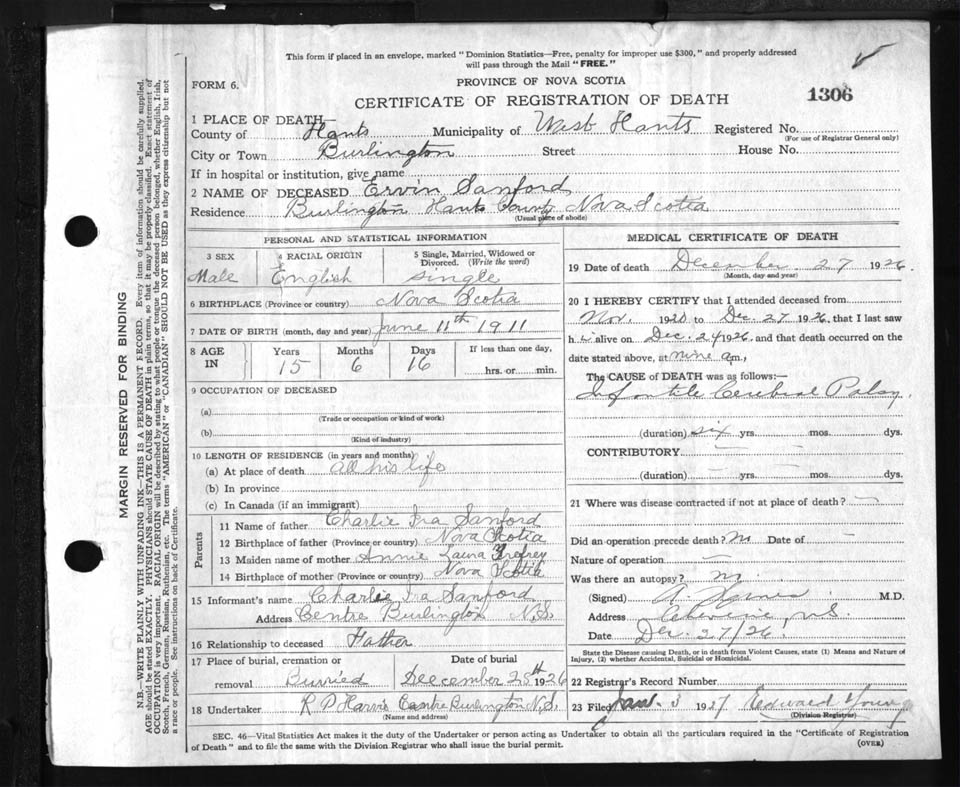 This form if placed in an envelope, marked "Dominion Statistics—Free, penalty for improper use $300," and properly addressed
will pass through the Mail "FREE."
FORM 6.
PROVINCE OF NOVA SCOTIA
CERTIFICATE OF REGISTRATION OF DEATH
1306
1 PLACE OF DEATH
County of Hants Municipality of West Hants Registered No.
(For use of Registrar General only)
City or Town Burlington Street House No.
If in hospital or institution, give name
2 NAME OF DECEASED Ervin Sanford
Residence Burlington Hants County Nova Scotia
(Usual place of abode)
PERSONAL AND STATISTICAL INFORMATION
3 SEX 4 RACIAL ORIGIN 5 Single, Married, Widowed or
Divorced. (Write the word)
Male English Single
6 BIRTHPLACE (Province or country) Nova Scotia
7 DATE OF BIRTH (month, day and year) June 11th 1911
8 AGE IN Years Months Days If less than one day,
15 6 16 hrs. or min.
9 OCCUPATION OF DECEASED
(a)
(Trade or occupation or kind of work)
(b)
(Kind of industry)
10 LENGTH OF RESIDENCE (in years and months)
(a) At place of death all his life
(b) In province
(c) In Canada (if an immigrant)
Parents
11 Name of father Charlie Ira Sanford
12 Birthplace of father (Province or country) Nova Scotia
13 Maiden name of mother Annie Laura
14 Birthplace of mother (Province or country) Nova Scotia
15 Informant's name Charlie Ira Sanford
Address Centre Burlington N.S.
16 Relationship to deceased Father
17 Place of burial, cremation or removal Date of burial
Burried December 28th 1926
18 Undertaker R P Harvie Centre Burlington N.S.
(Name and address)
MEDICAL CERTIFICATE OF DEATH
19 Date of death December 27 1926.
(Month, day and year)
20 I HEREBY CERTIFY that I attended deceased from
Nov. 1920 to Dec. 27 1926, that I last saw
h i alive on Dec. 24 1926, and that death occurred on the
date stated above, at nine a m.,
The CAUSE of DEATH was as follows:—
Infantile Cerebral Palsy.
(duration) six yrs. mos. dys.
CONTRIBUTORY
(duration) yrs. mos. dys.
21 Where was disease contracted if not at place of death?
Did an operation precede death? No Date of
Nature of operation
Was there an autopsy? no
(Signed) M.D.
Address
Date Dec. 27/26.
State the Disease causing Death, or in death from Violent Causes, state (1) Means and Nature of
Injury, (2) whether Accidental, Suicidal or Homicidal.
22 Registrar's Record Number
23 Filed Jan. 3 1927 Edward Young
(Division Registrar)
SEC. 46—Vital Statistics Act makes it the duty of the Undertaker or person acting as Undertaker to obtain all the particulars required in the "Certificate of Registration
of Death" and to file the same with the Division Registrar who shall issue the burial permit.
(OVER)
MARGIN RESERVED FOR BINDING
N.B.—WRITE PLAINLY WITH UNFADING INK—THIS IS A PERMANENT RECORD. Every item of information should be carefully supplied.
AGE should be stated EXACTLY. PHYSICIANS should STATE CAUSE OF DEATH in plain terms, so that it may be properly classified. Exact statement of
OCCUPATION is very important. RACIAL ORIGIN will be described by stating to what people or tongue the deceased person belonged, whether English, Irish,
Scotch, French, German, Russian, Ruthenian, etc. The terms "AMERICAN" or "CANADIAN" SHOULD NOT BE USED as they express citizenship but not
a race or people. See instructions on back of Certificate.